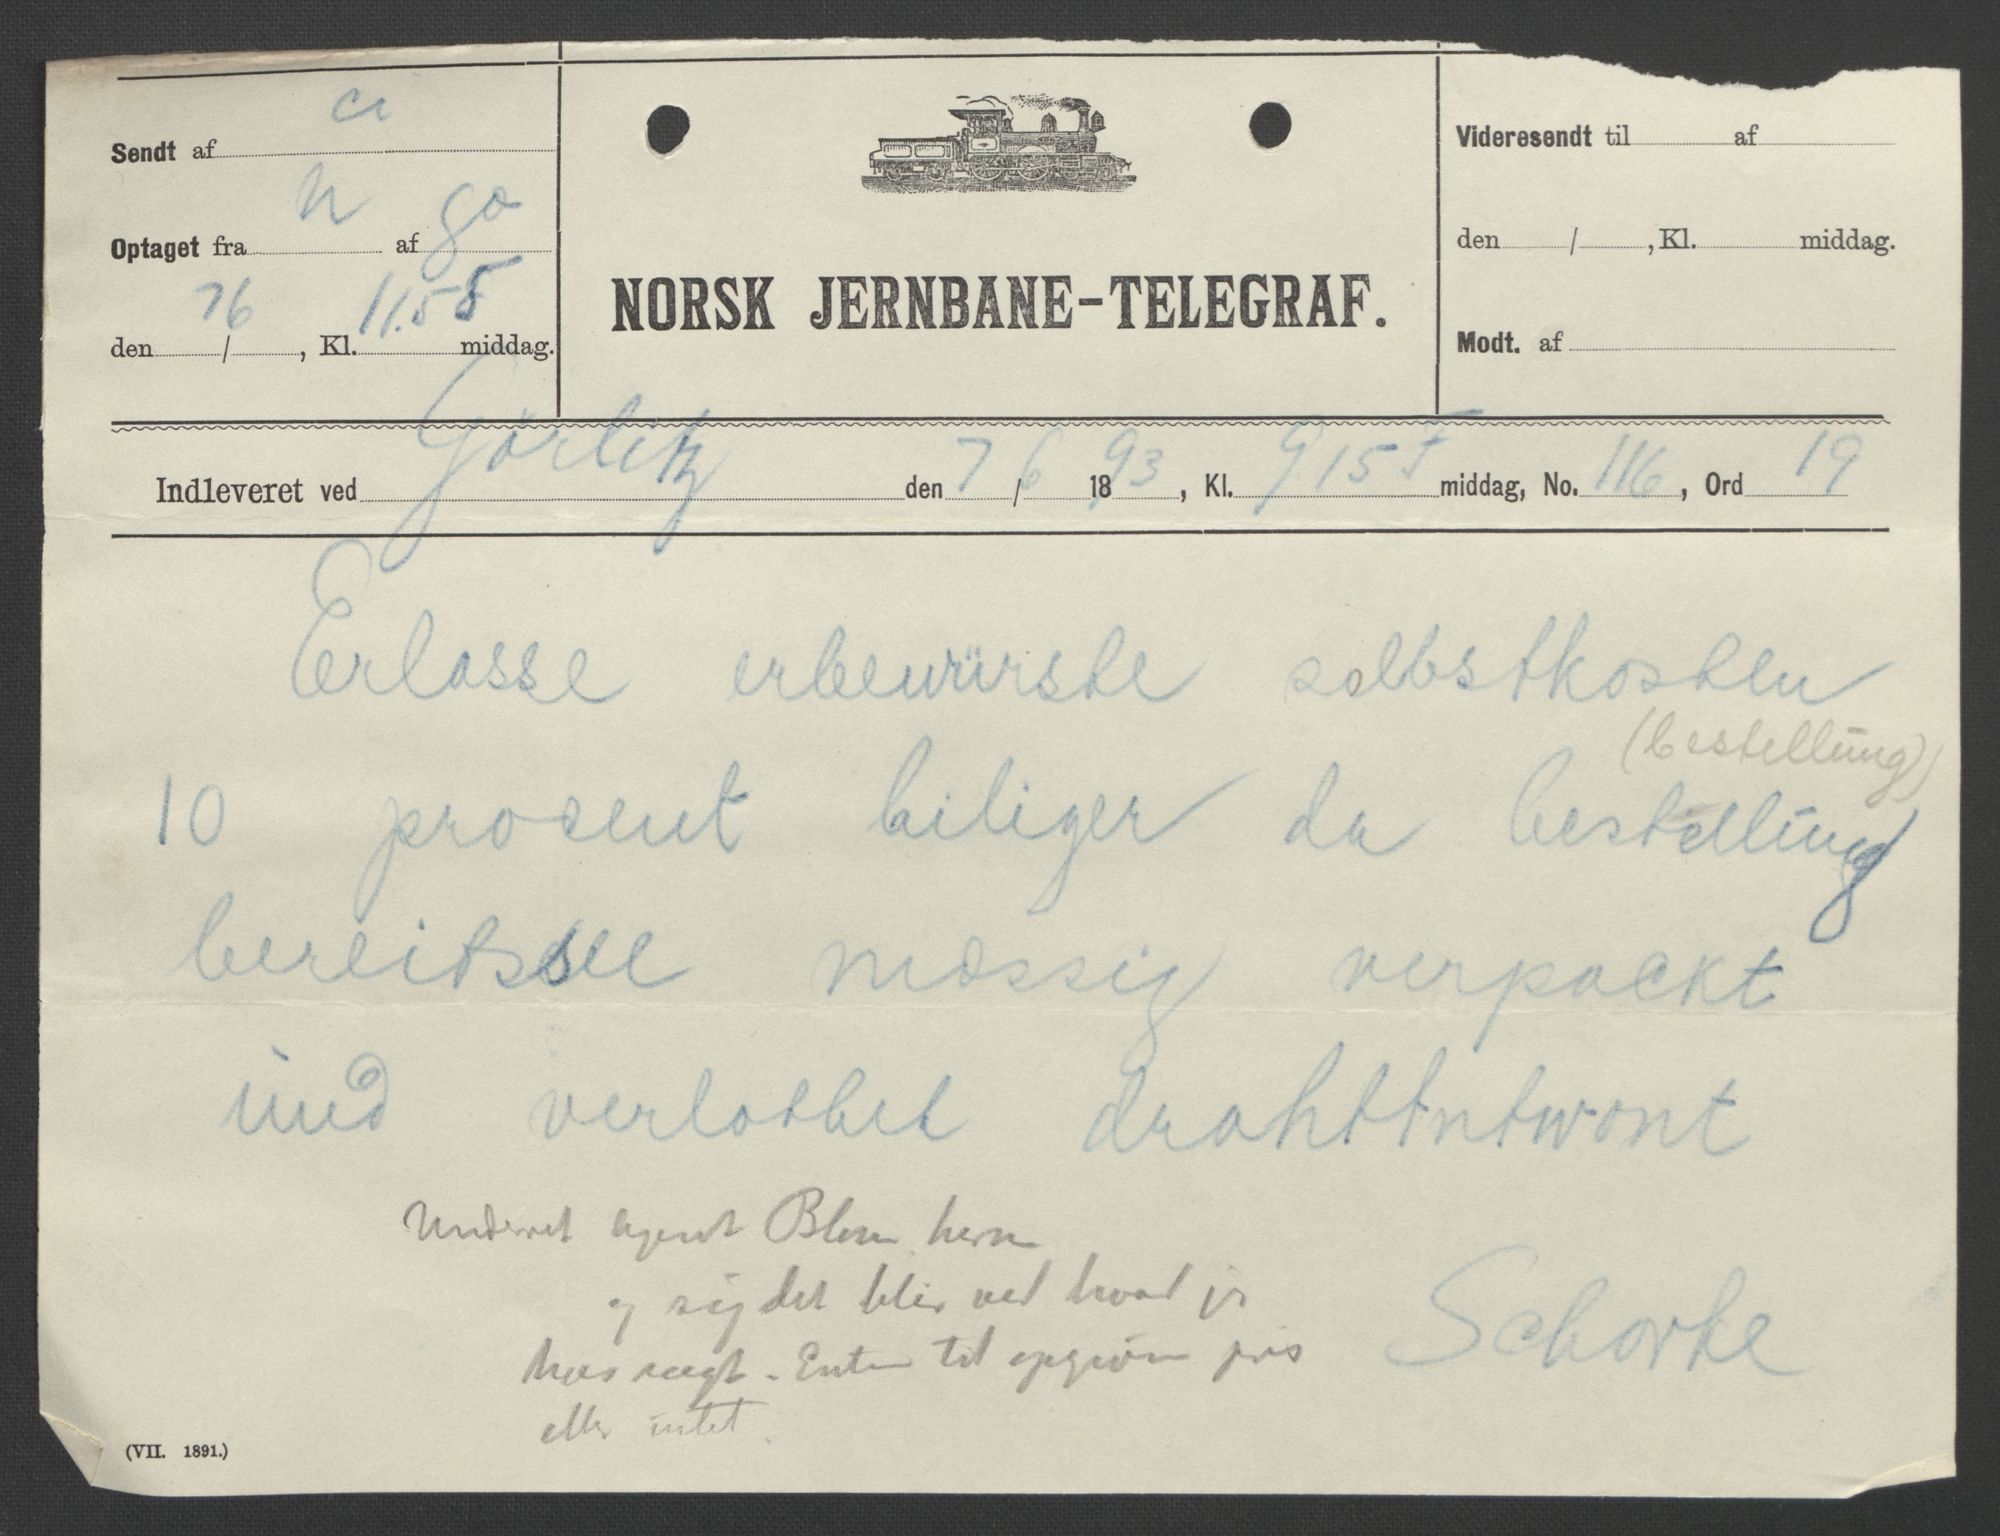 Sendt af ci
Optaget fra n af go
den 7/6, Kl. 11.55 middag.
NORSK JERNBANE-TELEGRAF.
Videresendt til af
den / , Kl. middag.
Modt. af
Indleveret ved Görlitz den 7/6 1893, Kl. 9 15 F middag, No. 116, Ord 19
Erlasse erbewürste selbstkosten
(bestellung)
10 prosent biliger da bestellung
bereits see mässig verpackt
und verlothet drahtantwort
Schorke
Underret agent Blom herom
og sig det blir ved hvad jeg
har sagt. Enten til opgiven pris
eller intet.
(VII. 1891.)